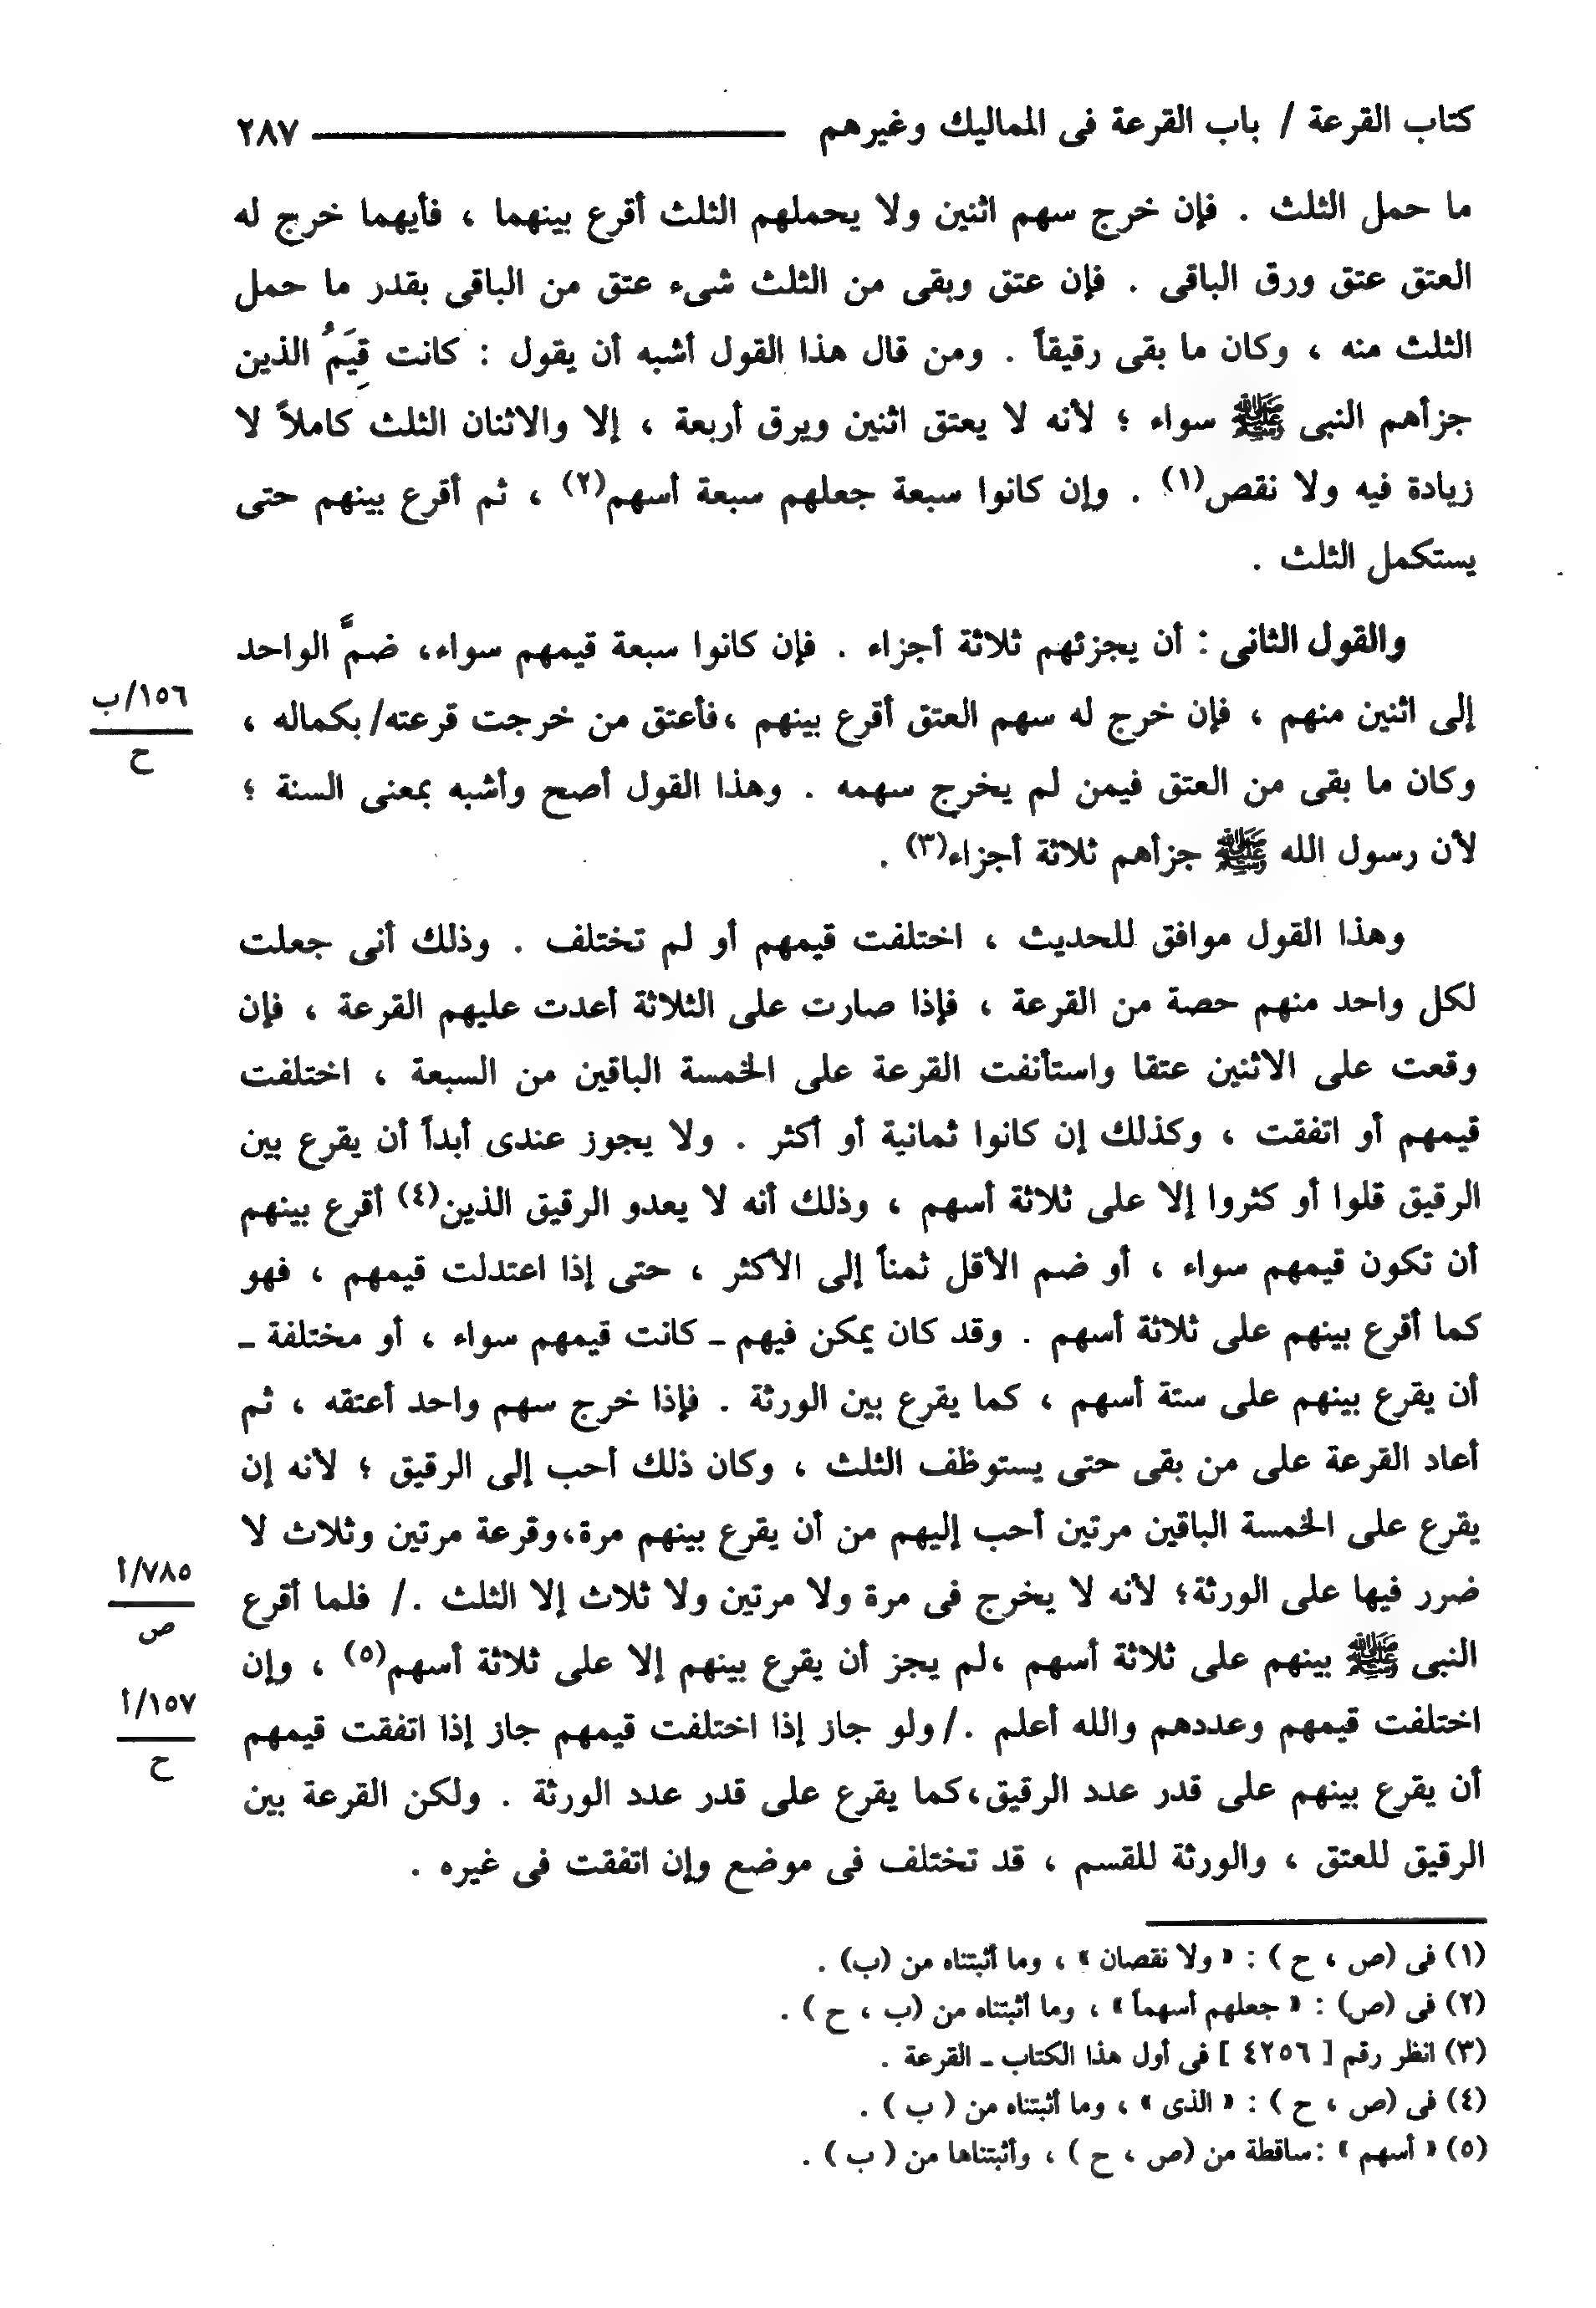 كتاب القرعة / باب القرعة فى المماليك وغيرهم ٢٨٧
ما حمل الثلث . فإن خرج سهم اثنين ولا يحملهم الثلث أقرع بينهما ، فأيهما خرج له
العتق عتق ورق الباقى . فإن عتق وبقى من الثلث شىء عتق من الباقى بقدر ما حمل
الثلث منه ، وكان ما بقى رقيقاً . ومن قال هذا القول أشبه أن يقول : كانت قِيَمُ الذين
جزأهم النبى ﷺ سواء ؛ لأنه لا يعتق اثنين ويرق أربعة ، إلا والاثنان الثلث كاملاً لا
زيادة فيه ولا نقص(١) . وإن كانوا سبعة جعلهم سبعة أسهم(٢) ، ثم أقرع بينهم حتى
يستكمل الثلث .
والقول الثانى : أن يجزئهم ثلاثة أجزاء . فإن كانوا سبعة قيمهم سواء، ضمَّ الواحد
إلى اثنين منهم ، فإن خرج له سهم العتق أقرع بينهم ،فأعتق من خرجت قرعته/ بكماله ،
١٥٦/ب
ح
وكان ما بقى من العتق فيمن لم يخرج سهمه . وهذا القول أصح وأشبه بمعنى السنة ؛
لأن رسول الله ﷺ جزأهم ثلاثة أجزاء(٣) .
وهذا القول موافق للحديث ، اختلفت قيمهم أو لم تختلف . وذلك أنى جعلت
لكل واحد منهم حصة من القرعة ، فإذا صارت على الثلاثة أعدت عليهم القرعة ، فإن
وقعت على الاثنين عتقا واستأنفت القرعة على الخمسة الباقين من السبعة ، اختلفت
قيمهم أو اتفقت ، وكذلك إن كانوا ثمانية أو أكثر . ولا يجوز عندى أبداً أن يقرع بين
الرقيق قلوا أو كثروا إلا على ثلاثة أسهم ، وذلك أنه لا يعدو الرقيق الذين(٤) أقرع بينهم
أن تكون قيمهم سواء ، أو ضم الأقل ثمناً إلى الأكثر ، حتى إذا اعتدلت قيمهم ، فهو
كما أقرع بينهم على ثلاثة أسهم . وقد كان يمكن فيهم ـ كانت قيمهم سواء ، أو مختلفة ـ
أن يقرع بينهم على ستة أسهم ، كما يقرع بين الورثة . فإذا خرج سهم واحد أعتقه ، ثم
أعاد القرعة على من بقى حتى يستوظف الثلث ، وكان ذلك أحب إلى الرقيق ؛ لأنه إن
يقرع على الخمسة الباقين مرتين أحب إليهم من أن يقرع بينهم مرة،وقرعة مرتين وثلاث لا
ضرر فيها على الورثة؛ لأنه لا يخرج فى مرة ولا مرتين ولا ثلاث إلا الثلث ./ فلما أقرع
٧٨٥/أ
ص
النبى ﷺ بينهم على ثلاثة أسهم ،لم يجز أن يقرع بينهم إلا على ثلاثة أسهم(٥) ، وإن
اختلفت قيمهم وعددهم والله أعلم ./ ولو جاز إذا اختلفت قيمهم جاز إذا اتفقت قيمهم
١٥٧/أ
ح
أن يقرع بينهم على قدر عدد الرقيق،كما يقرع على قدر عدد الورثة . ولكن القرعة بين
الرقيق للعتق ، والورثة للقسم ، قد تختلف فى موضع وإن اتفقت فى غيره .
(١) فى (ص ، ح ) : « ولا نقصان » ، وما أثبتناه من (ب) .
(٢) فى (ص) : « جعلهم أسهماً » ، وما أثبتناه من (ب ، ح ) .
(٣) انظر رقم [ ٤٢٥٦ ] فى أول هذا الكتاب ـ القرعة .
(٤) فى (ص ، ح ) : « الذى » ، وما أثبتناه من ( ب ) .
(٥) « أسهم » :ساقطة من (ص ، ح ) ، وأثبتناها من ( ب ) .